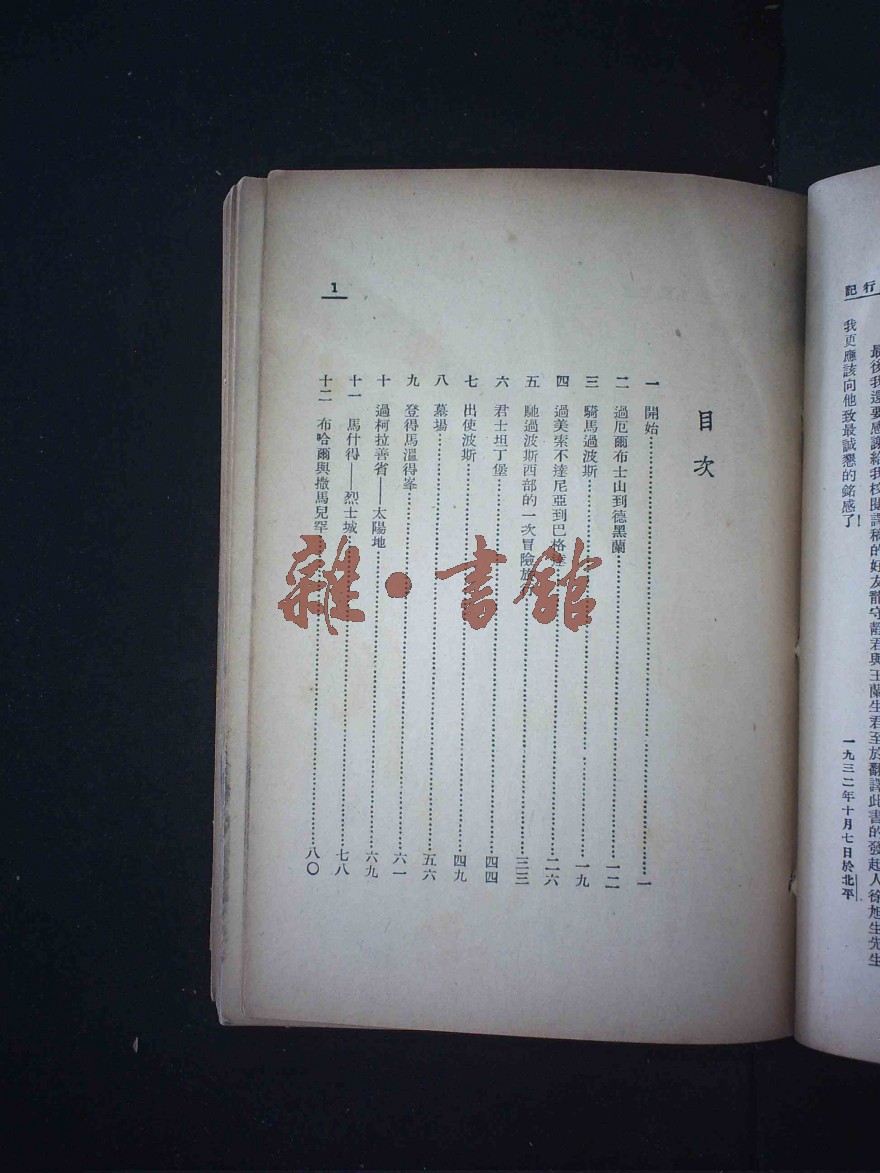 行記
最後我還要感謝給我校閱譯稿的好友龍守靜君與王蘭生君至於翻譯此書的發起人徐旭生先生
我更應該向他致最誠懇的銘感了！
一九三二年十月七日於北平
目次
一 開始……一
二 過厄爾布士山到德黑蘭……一二
三 騎馬過波斯……一九
四 過美索不達尼亞到巴格達……二六
五 馳過波斯西部的一次冒險旅行……三三
六 君士坦丁堡……四四
七 出使波斯……四九
八 墓場……五六
九 登得馬溫得峯……六一
十 過柯拉善省——太陽地……六九
十一 馬什得——烈士城……七八
十二 布哈爾與撒馬兒罕……八〇
1
雜·書館